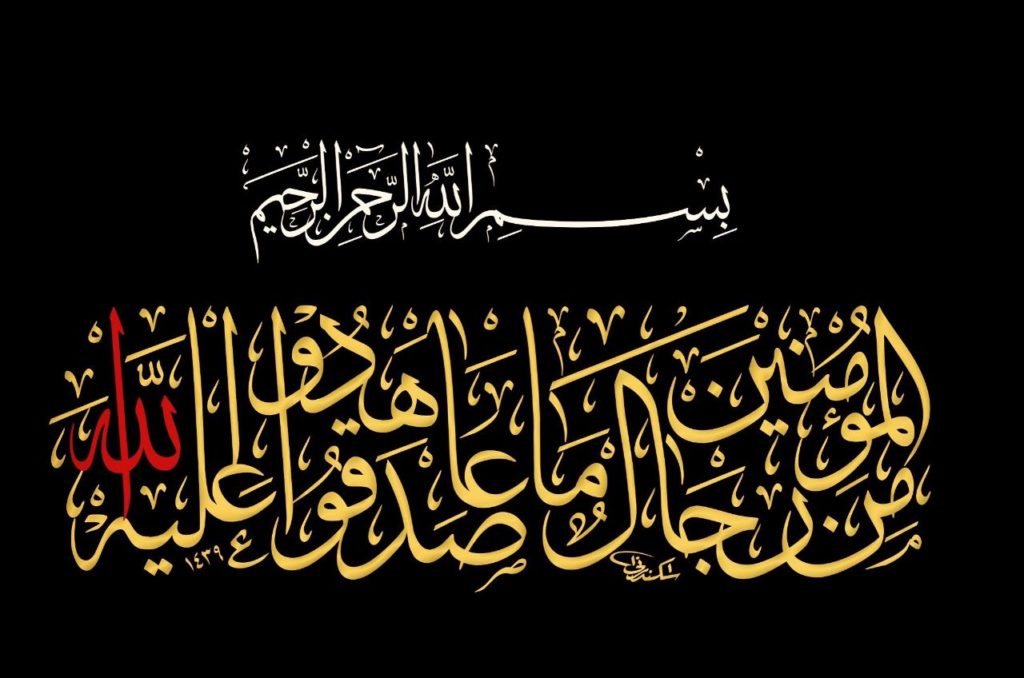 بِسْمِ اللَّهِ الرَّحْمَٰنِ الرَّحِيمِ
مِنَ الْمُؤْمِنِينَ رِجَالٌ صَدَقُوا مَا عَاهَدُوا اللَّهَ عَلَيْهِ
١٤٣٩